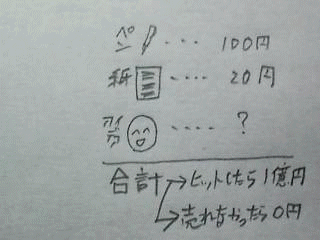 ペン・・・100円
紙・・・・20円
アイデア・・・・?
合計→ヒットしたら1億円
→売れなかったら0円